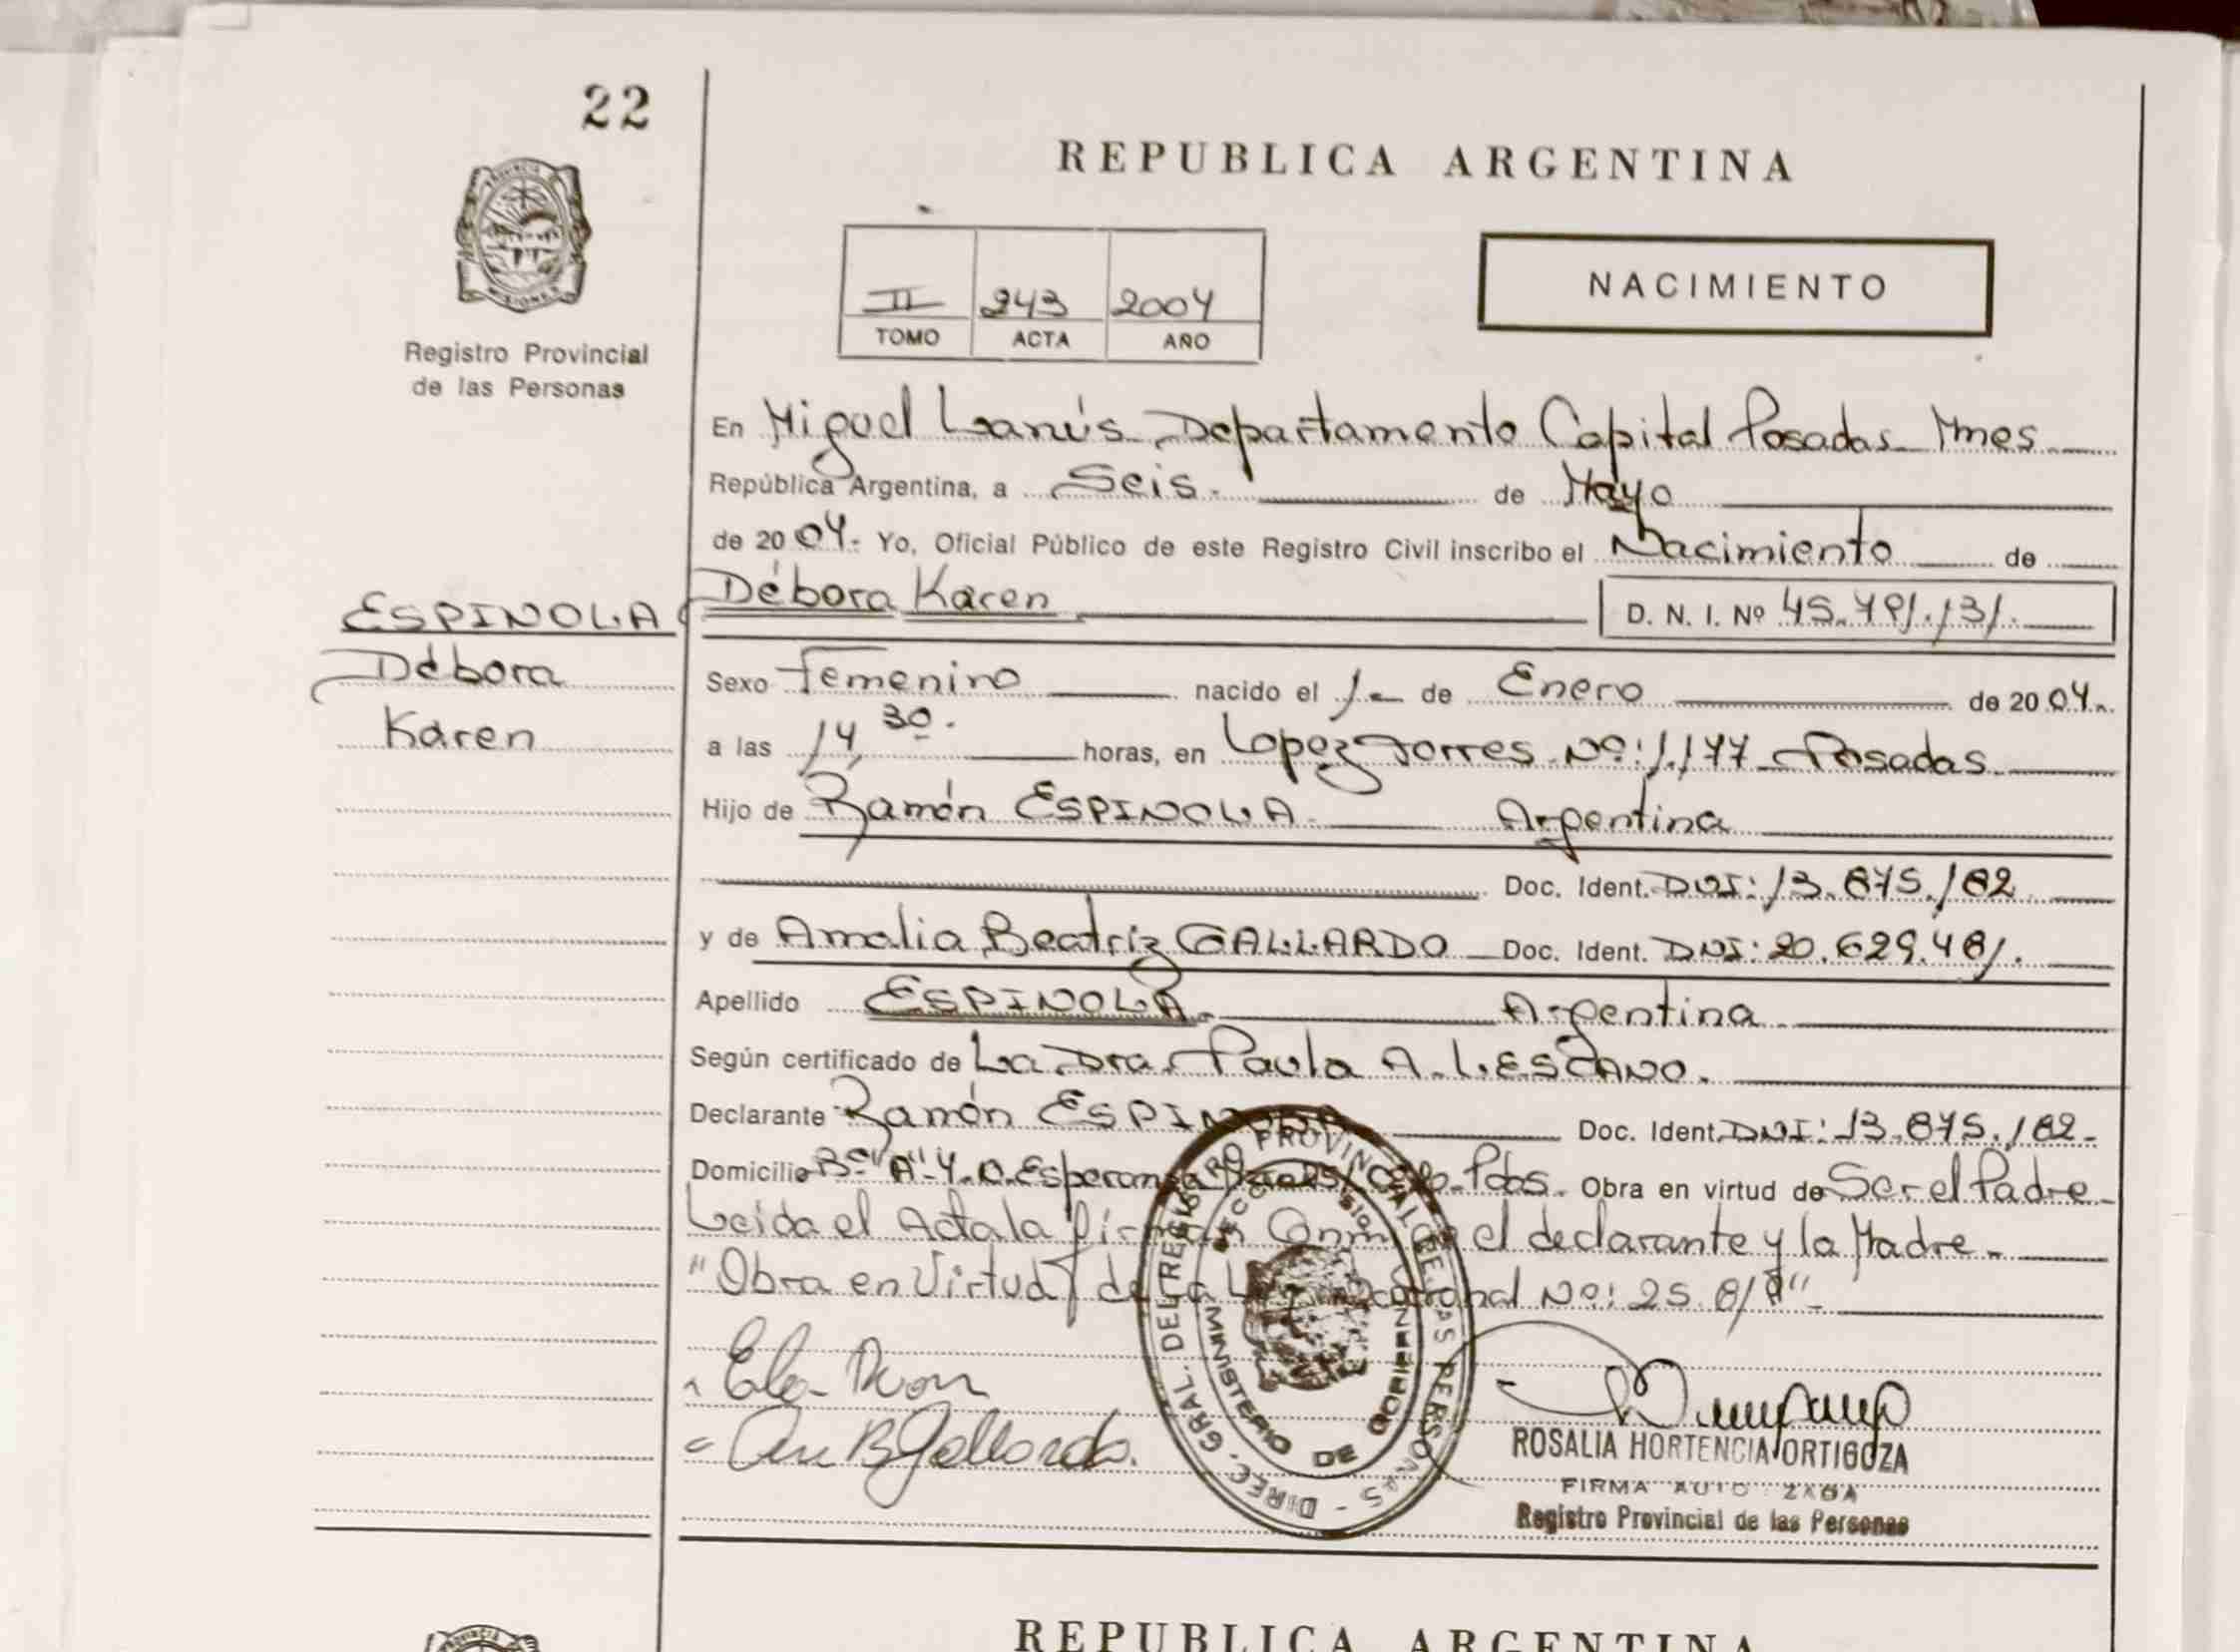 22
REPUBLICA ARGENTINA
NACIMIENTO
II 243 2004
TOMO ACTA AÑO
Registro Provincial
de las Personas
En Miguel Lanús Departamento Capital Posadas Mnes
República Argentina, a Seis. de Mayo
de 2004. Yo, Oficial Público de este Registro Civil inscribo el Nacimiento de
Débora Karen D. N. I. Nº
ESPINOLA
Débora
Karen
Sexo Femenino nacido el 1- de Enero de 2004.
a las 14,30. horas, en Lopez Torres Nº: 1.177 Posadas
Hijo de Ramón ESPINOLA Argentina
Doc. Ident. DNI: 13.875.182
y de Amalia Beatriz GALLARDO Doc. Ident. DNI: 20.629.481.
Apellido ESPINOLA. Argentina
Según certificado de La Dra. Paula A. LESCANO.
Declarante Ramón ESPINOLA Doc. Ident. DNI: 13.875.182-
Domicilio Bº "A" 4. Obra en virtud de Ser el Padre
Leida el Acta la firman el declarante y la Madre
"Obra en Virtud de La Ley Nacional Nº: 25.819"
DIREC. GRAL. DEL REGISTRO PROVINCIAL DE LAS PERSONAS
MINISTERIO DE GOBIERNO
ROSALIA HORTENCIA ORTIGOZA
FIRMA
Registro Provincial de las Personas
REPUBLICA ARGENTINA